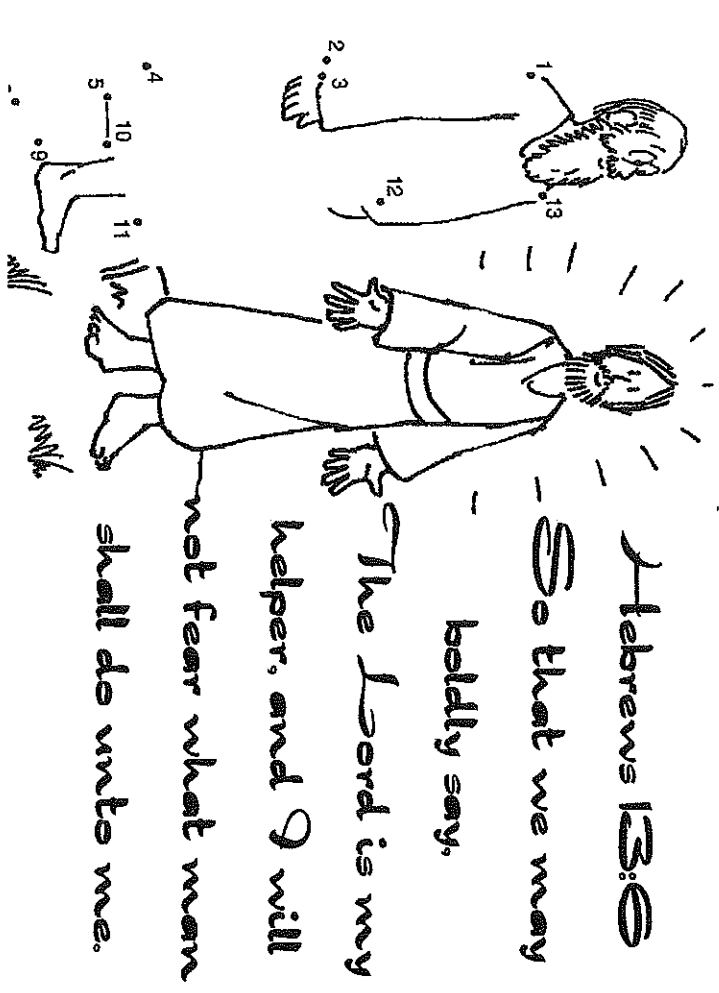 Hebrews 13:6
So that we may
boldly say,
The Lord is my
helper, and I will
not fear what man
shall do unto me.
1
13
12
2
3
4
11
10
5
9